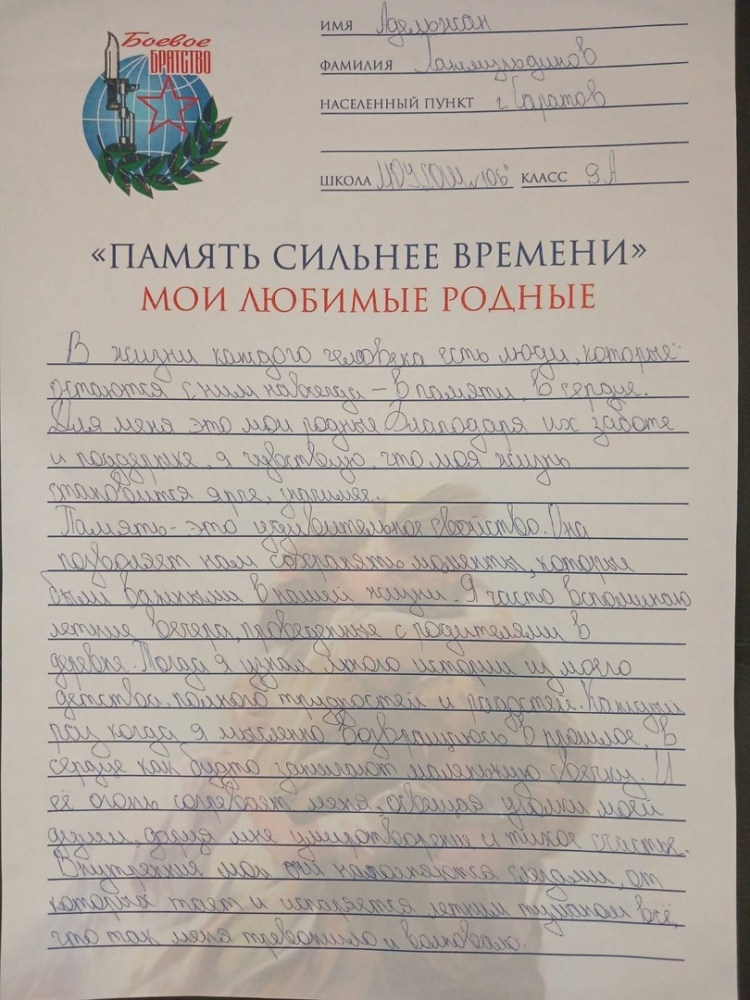 Боевое
БРАТСТВО
ИМЯ Адельжан
ФАМИЛИЯ
НАСЕЛЕННЫЙ ПУНКТ г. Саратов
ШКОЛА МОУ СОШ №106 КЛАСС 9А
«ПАМЯТЬ СИЛЬНЕЕ ВРЕМЕНИ»
МОИ ЛЮБИМЫЕ РОДНЫЕ
В жизни каждого человека есть люди, которые
остаются с ним навсегда – в памяти, в сердце.
Для меня это мои родные. Благодаря их заботе
и поддержке, я чувствую, что моя жизнь
становится ярче,
Память - это удивительное свойство. Она
позволяет нам сохранять моменты, которые
были важными в нашей жизни. Я часто вспоминаю
летние вечера, проведенные с родителями в
деревне. Тогда я узнал много истории из моего
детства, полного трудностей и радостей. Каждый
раз когда я мысленно возвращаюсь в прошлое, в
сердце как будто зажигают маленькую свечку. И
её огонь согревает меня, освещая уголки моей
души, даря мне умиротворение и тихое счастье.
Внутренний мой наполняется от
которых тает и испаряется летним туманом всё,
что так меня тревожило и волновало.